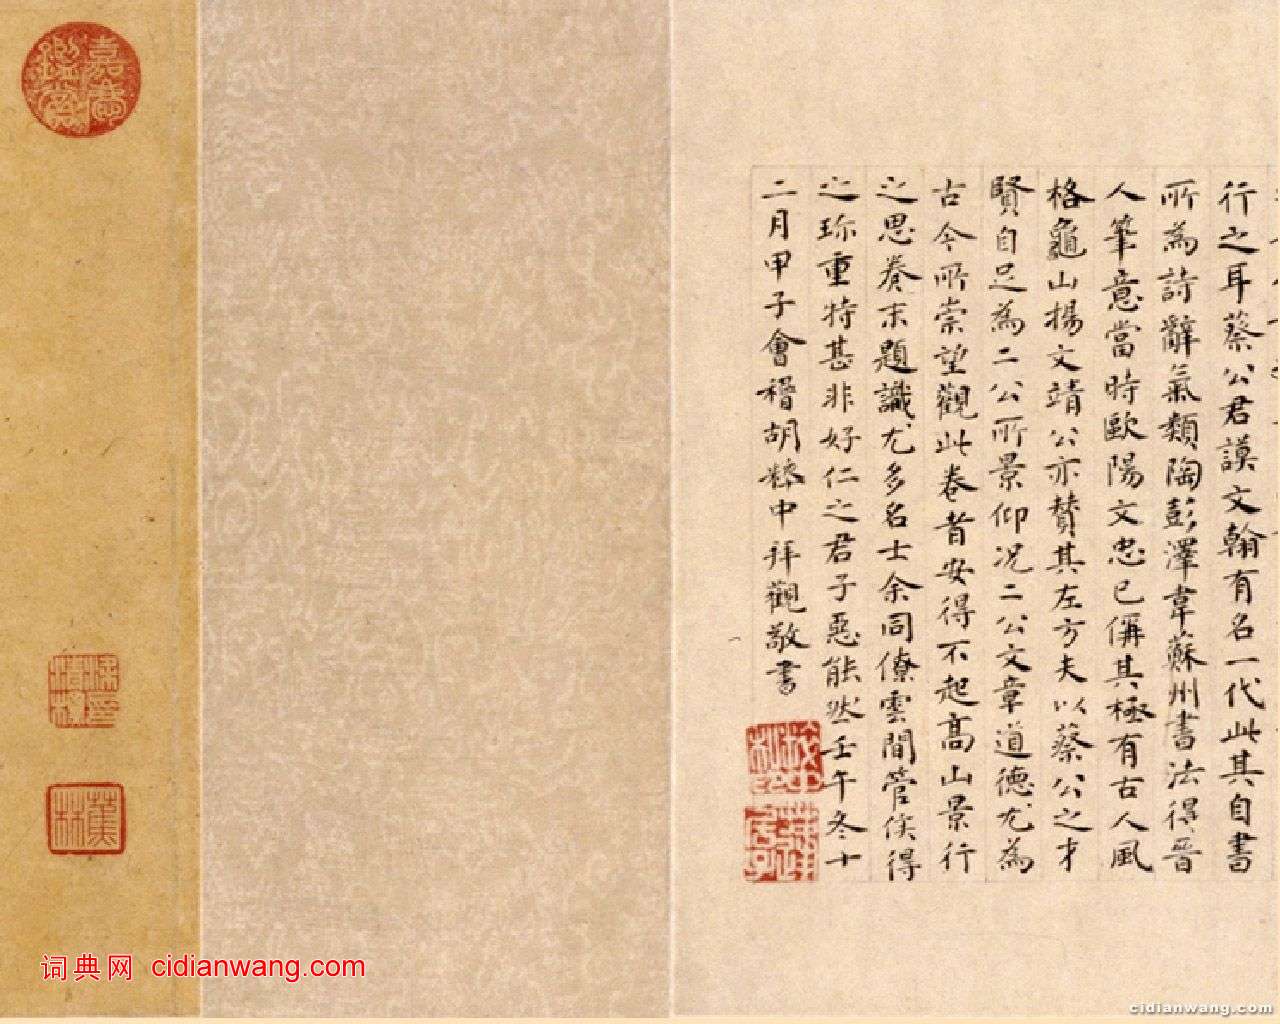 行之耳蔡公君謨文翰有名一代此其自書
所為詩辭氣類陶彭澤韋蘇州書法得晉
人筆意當時歐陽文忠已偁其極有古人風
格龜山楊文靖公亦贊其左方夫以蔡公之才
賢自足為二公所景仰况二公文章道德尤為
古今所崇望觀此卷者安得不起高山景行
之思卷末題識尤多名士余同僚雲間管侯得
之珎重特甚非好仁之君子惡能然壬午冬十
二月甲子會稽胡粹中拜觀敬書
嘉慶鑑賞
蕉林
词典网 cidianwang.com
cidianwang.com